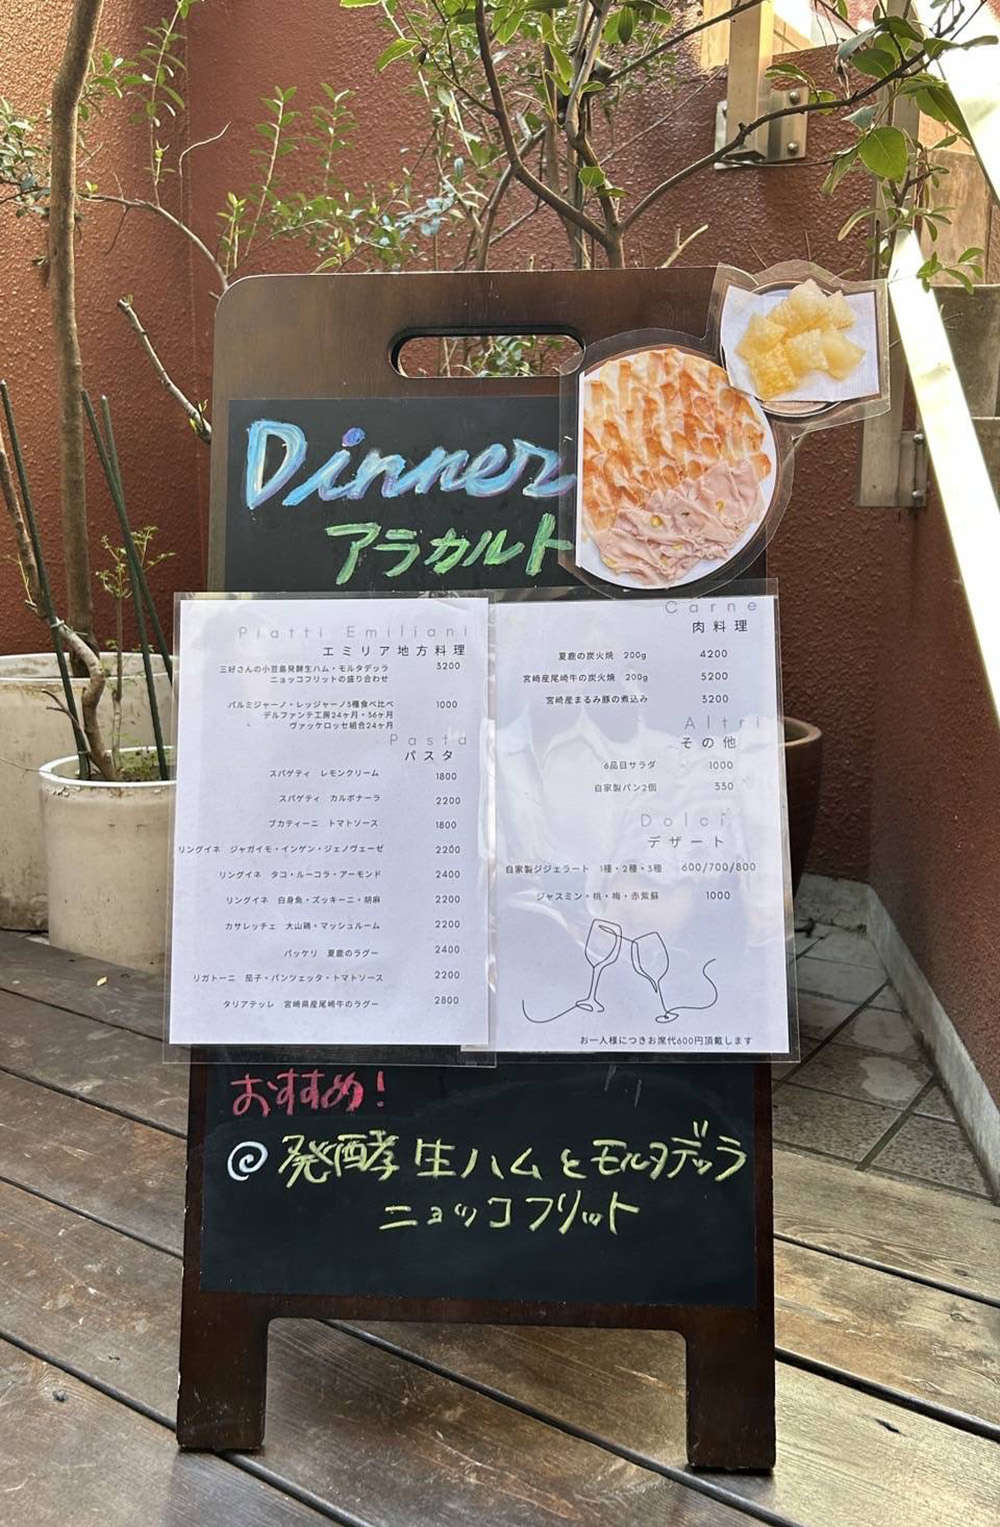 Dinner
アラカルト
Piatti Emiliani
エミリア地方料理
三好さんの小豆島発酵生ハム・モルタデッラ 3200
ニョッコフリットの盛り合わせ
パルミジャーノ・レッジャーノ3種食べ比べ 1000
デルファンテ工房24ヶ月・36ヶ月
ヴァッケロッセ組合24ヶ月
Pasta
パスタ
スパゲティ レモンクリーム 1800
スパゲティ カルボナーラ 2200
ブカティーニ トマトソース 1800
リングイネ ジャガイモ・インゲン・ジェノヴェーゼ 2200
リングイネ タコ・ルーコラ・アーモンド 2400
リングイネ 白身魚・ズッキーニ・胡麻 2200
カサレッチェ 大山鶏・マッシュルーム 2200
パッケリ 夏鹿のラグー 2400
リガトーニ 茄子・パンツェッタ・トマトソース 2200
タリアテッレ 宮崎県産尾崎牛のラグー 2800
Carne
肉料理
夏鹿の炭火焼 200g 4200
宮崎産尾崎牛の炭火焼 200g 5200
宮崎産まるみ豚の煮込み 3200
Altri
その他
6品目サラダ 1000
自家製パン2個 350
Dolci
デザート
自家製ジジェラート 1種・2種・3種 600/700/800
ジャスミン・桃・梅・赤紫蘇 1000
お一人様につきお席代600円頂戴します
おすすめ!
発酵生ハムとモルタデッラ
ニョッコフリット